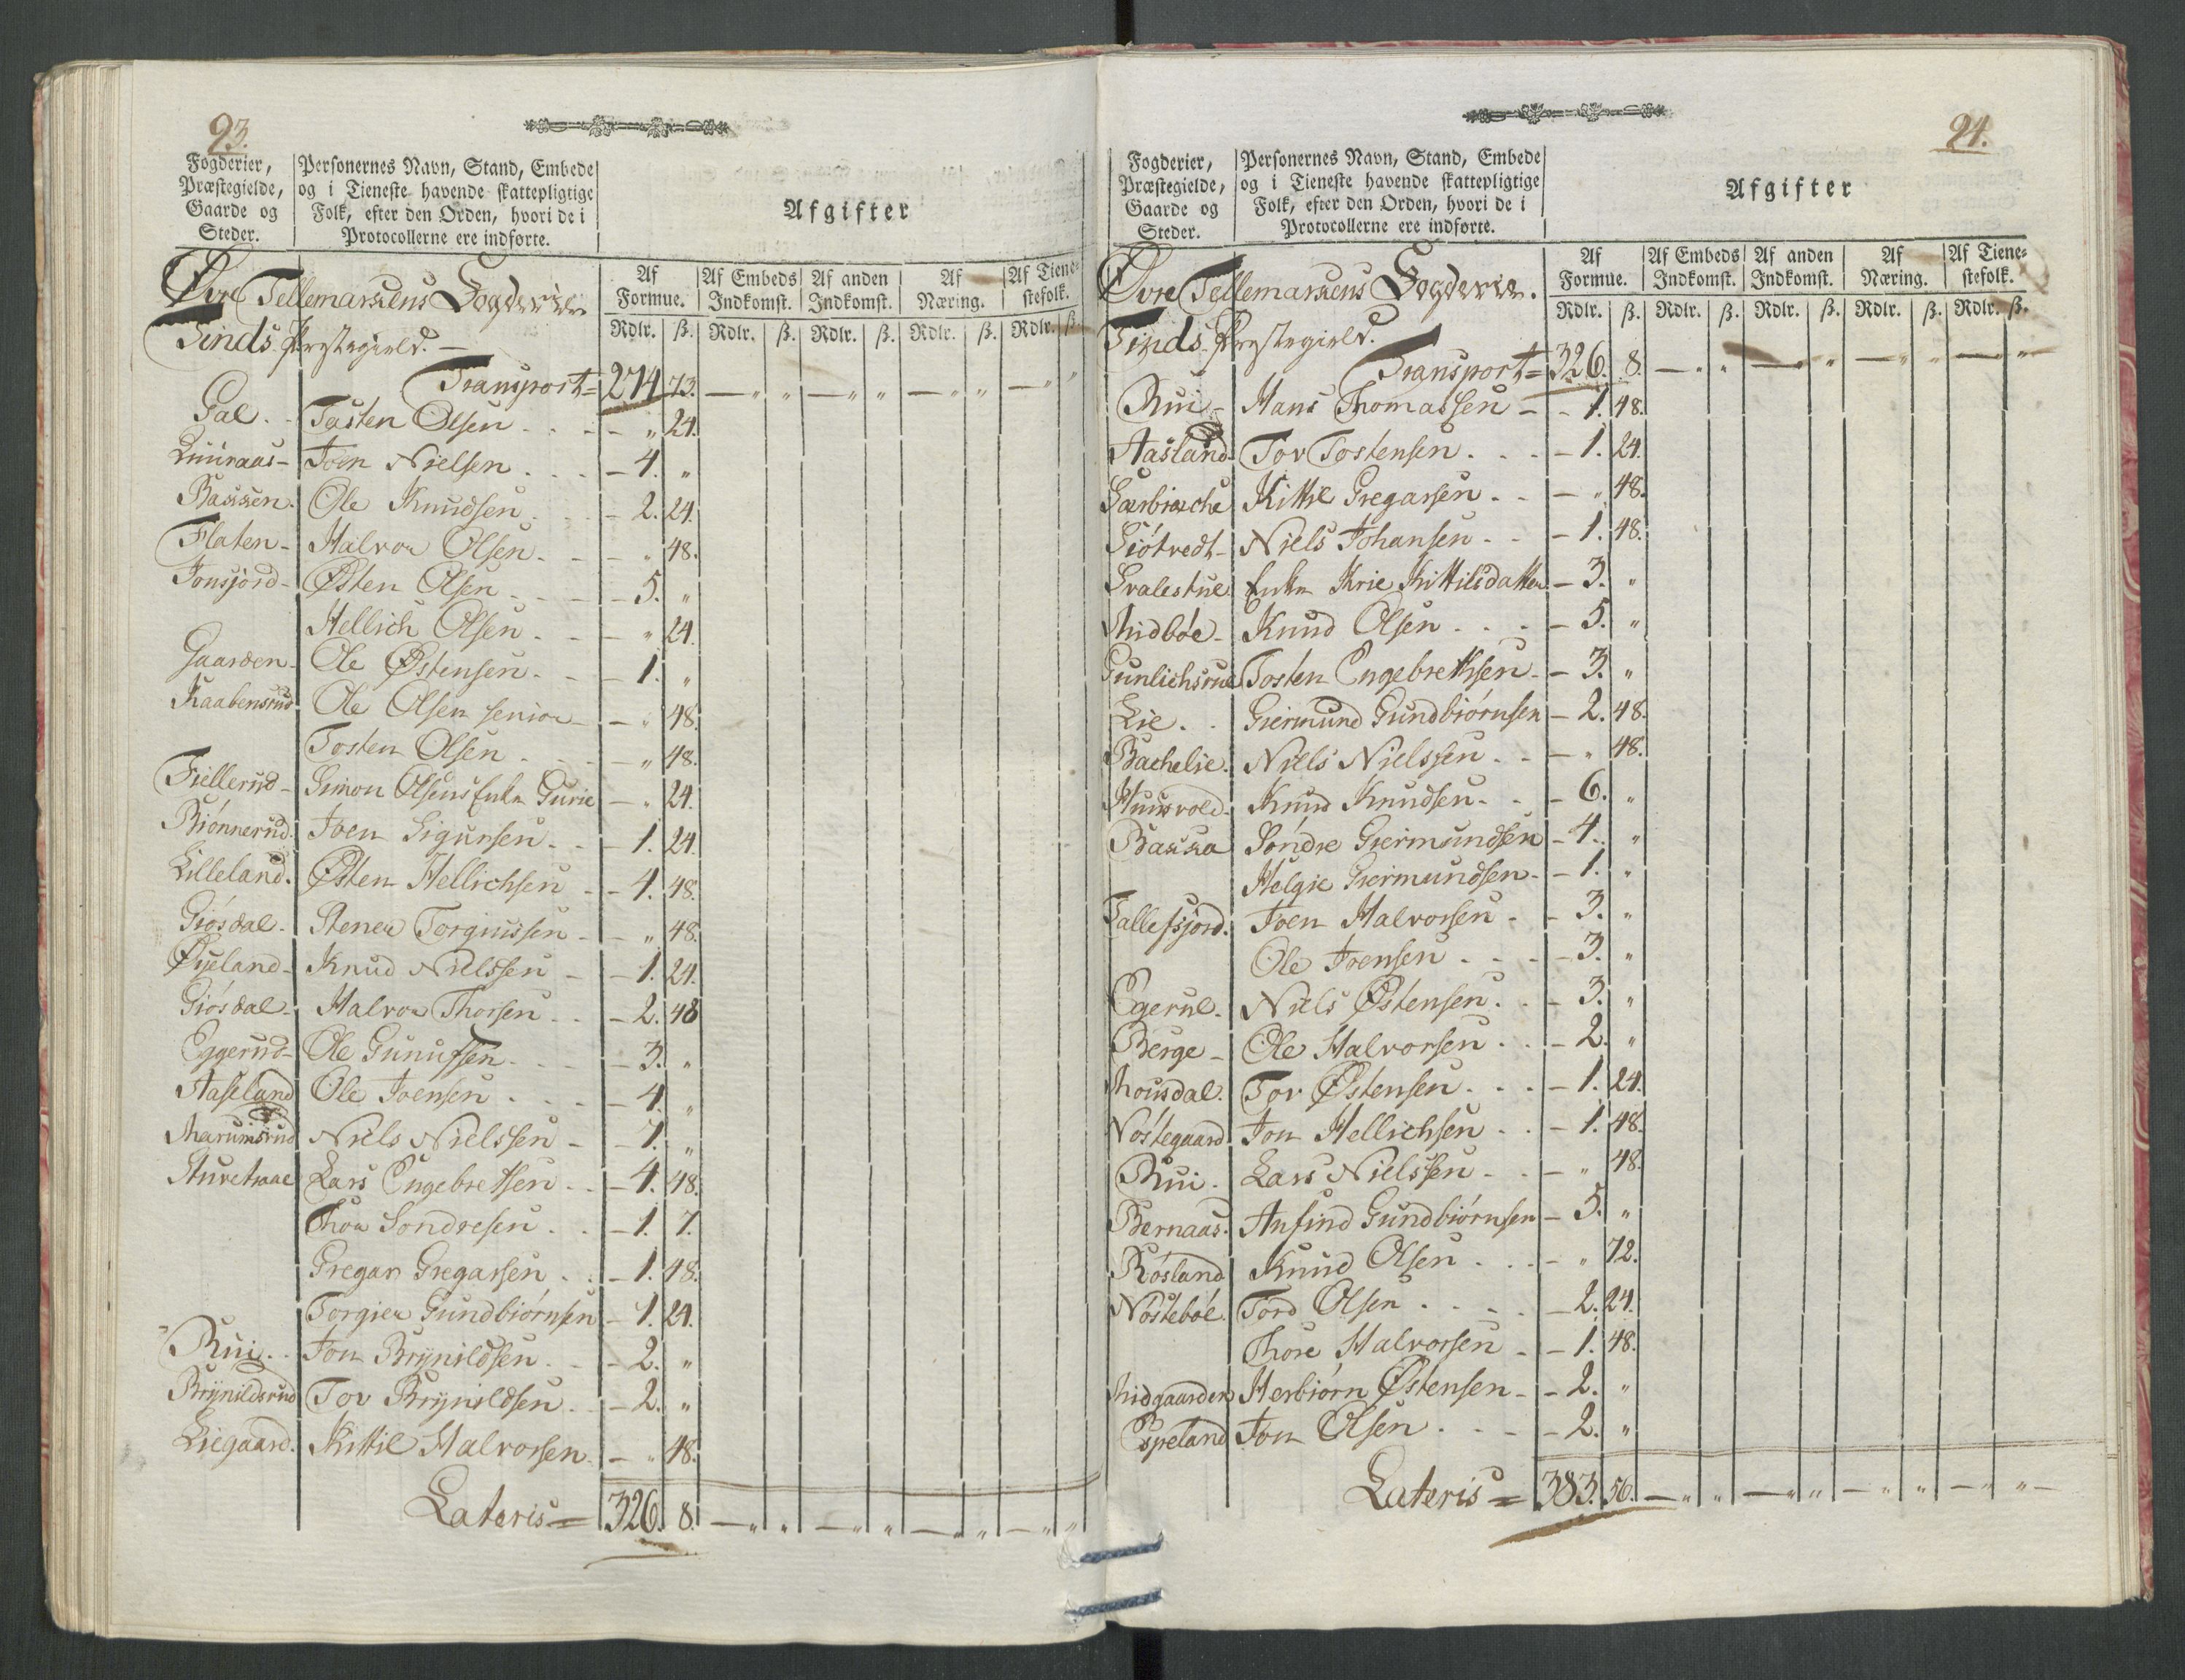 93.
Fogderier, Præstegielde, Gaarde og Steder.
Personernes Navn, Stand, Embede og i Tieneste havende skattepligtige Folk, efter den Orden, hvori de i Protocollerne ere indførte.
Afgifter
Af Formue. Af Embeds Indkomst. Af anden Indkomst. Af Næring. Af Tienestefolk.
Rdlr. ß. Rdlr. ß. Rdlr. ß. Rdlr. ß. Rdlr. ß.
Øvre Tellemarkens Fogderie
Tinds Præstegield. —
Transport = 274 73. — „ „ — „ „ — „ „ — „ „
Gal. Tosten Olsen - „ 24.
Luuraas - Joen Nielsen - 4. „
Bakken. Ole Knudsen - 2. 24.
Flaten - Halvor Olsen - „ 48.
Jonsjord - Østen Olsen - 5. „
Hellich Olsen - „ 24.
Gaarden - Ole Østensen - 1. „
Kaabensrud Ole Olsen senior - „ 48.
Tosten Olsen - „ 48.
Fiellerud - Simon Olsens Enke Gurie - „ 24.
Biönnerud. Joen Sigursen - 1. 24.
Lilleland. Østen Hellichsen - 4. 48.
Giösdal - Stener Torgiussen - „ 48.
Øyeland - Knud Nielssen - 1. 24.
Giösdal - Halvor Thorsen - 2. 48
Eggerud - Ole Gunufsen - 3. „
Aaseland Ole Joensen - 4. „
Marumsrud Niels Nielssen - 7. „
Sturetraae Lars Engebretsen - 4. 48.
Thor Sondresen - 1. 7.
Gregar Gregarsen - 1. 48.
Torgier Gundbiörnsen - 1. 24.
Rui. Jon Brynildsen - 2. „
Brynildsrud Tov Brynildsen - 2. „
Liegaard. Kittil Halvorsen - „ 48.
Lateris = 326. 8. — „ „ — „ „ — „ „ — „ „
94.
Fogderier, Præstegielde, Gaarde og Steder.
Personernes Navn, Stand, Embede og i Tieneste havende skattepligtige Folk, efter den Orden, hvori de i Protocollerne ere indførte.
Afgifter
Af Formue. Af Embeds Indkomst. Af anden Indkomst. Af Næring. Af Tienestefolk.
Rdlr. ß. Rdlr. ß. Rdlr. ß. Rdlr. ß. Rdlr. ß.
Øvre Tellemarkens Fogderie.
Tinds Præstegield.
Transport = 326. 8. — „ „ — „ „ — „ „ — „ „
Rui - Hans Thomassen - 1. 48.
Aasland Tov Tostensen - 1. 24.
Kittil Gregarsen - „ 48.
Siötvedt - Niels Johansen - 1. 48.
Svalestue Enke Krie Kittilsdatter - 3. „
Midböe - Knud Olsen - 5. „
Gunlichsrue Tosten Engebrethsen - 3. „
Lie. Giermund Gundbiörnsen - 2. 48.
Bachelie. Niels Nielssen - „ 48.
Huusvold. Knud Knudsen - 6. „
Bakka Söndre Giermundsen - 4. „
Helgie Giermundsen - 1. „
Tallefsjord. Joen Halvorsen - 3. „
Ole Joensen - 3. „
Egerue. Niels Østensen - 3. „
Berge - Ole Halvorsen - 2. „
Mousdal. Tov Østensen - 1. 24.
Nöstegaard Jon Hellichsen - 1. 48.
Rui. Lars Nielssen - „ 48.
Bernaas. Anfind Gundbiörnsen - 5. „
Rösland Knud Olsen - „ 72.
Nösteböe. Tord Olsen - 2. 24.
Thore Halvorsen - 1. 48.
Midgaarden Herbiörn Østensen - 2. „
Espeland Jon Olsen - 2. „
Lateris = 383. 56. — „ „ — „ „ — „ „ — „ „ —